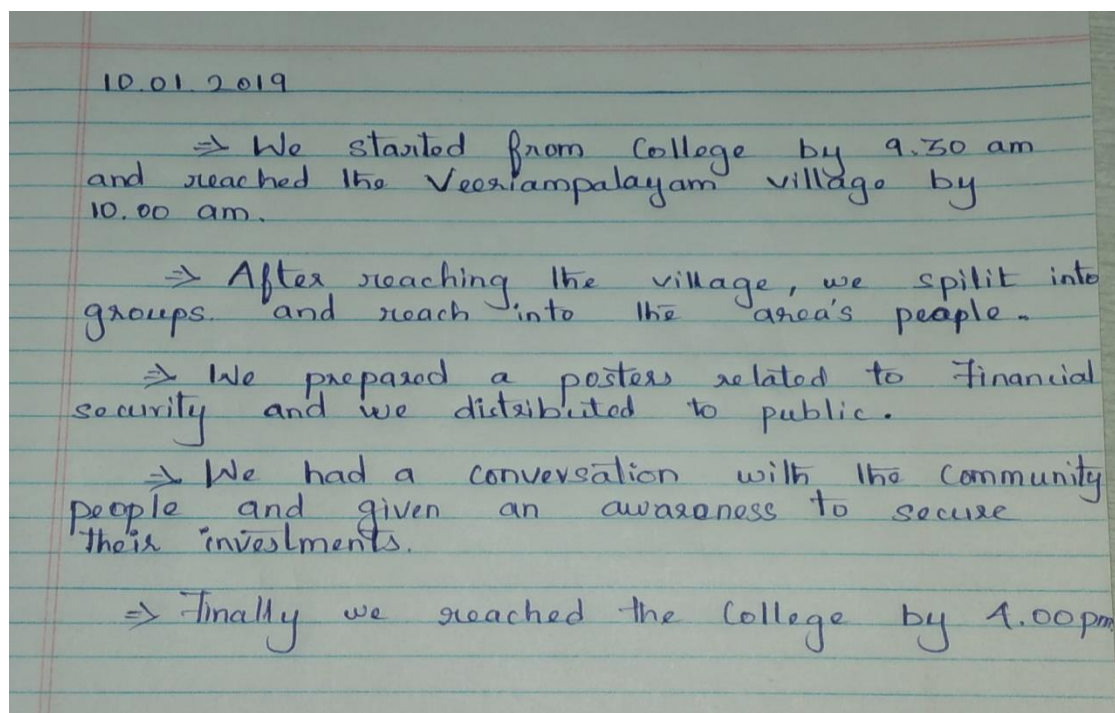 10.01.2019
⇒ We started from College by 9.30 am
and reached the Veeriampalayam village by
10.00 am.
⇒ After reaching the village, we spilit into
groups. and reach into the area's people.
⇒ We prepared a posters related to Financial
security and we distributed to public.
⇒ We had a conversation with the Community
people and given an awareness to secure
their investments.
⇒ Finally we reached the College by 4.00pm